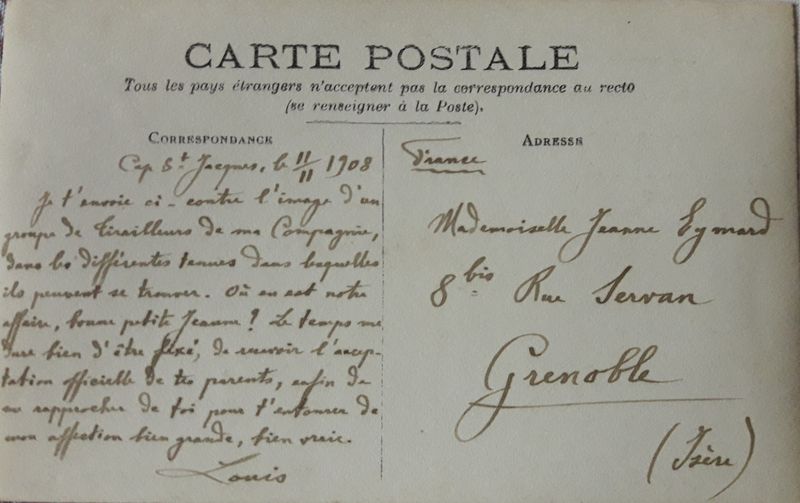 CARTE POSTALE
Tous les pays étrangers n'acceptent pas la correspondance au recto
(se renseigner à la Poste).
CORRESPONDANCE
Cap St Jacques, le 11/11 1908
Je t'envoie ci-contre l'image d'un
groupe de Tirailleurs de ma Compagnie,
dans les différentes tenues dans lesquelles
ils peuvent se trouver. Où en est notre
affaire, bonne petite Jeanne? Le temps me
dure bien d'être fixé, de recevoir l'accep-
tation officielle de tes parents, enfin de
me rapprocher de toi pour t'entourer de
mon affection bien grande, bien vraie.
Louis
ADRESSE
France
Mademoiselle Jeanne Eymard
8 bis Rue Servan
Grenoble
(Isère)